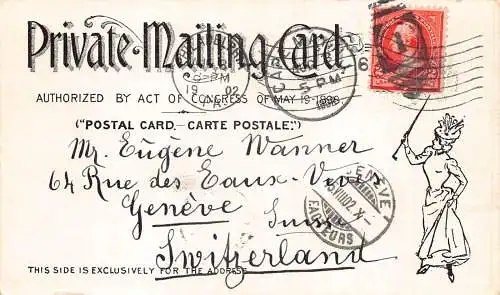 Private Mailing Card
AUTHORIZED BY ACT OF CONGRESS OF MAY 19 1898.
("POSTAL CARD, CARTE POSTALE:")
Mr. Eugène Wanner
64 Rue des Eaux-Vives
Genève Suisse
Switzerland
THIS SIDE IS EXCLUSIVELY FOR THE ADDRESS.
PM
19 02
5 PM
GENÈVE
VIII02.X
FACTEURS